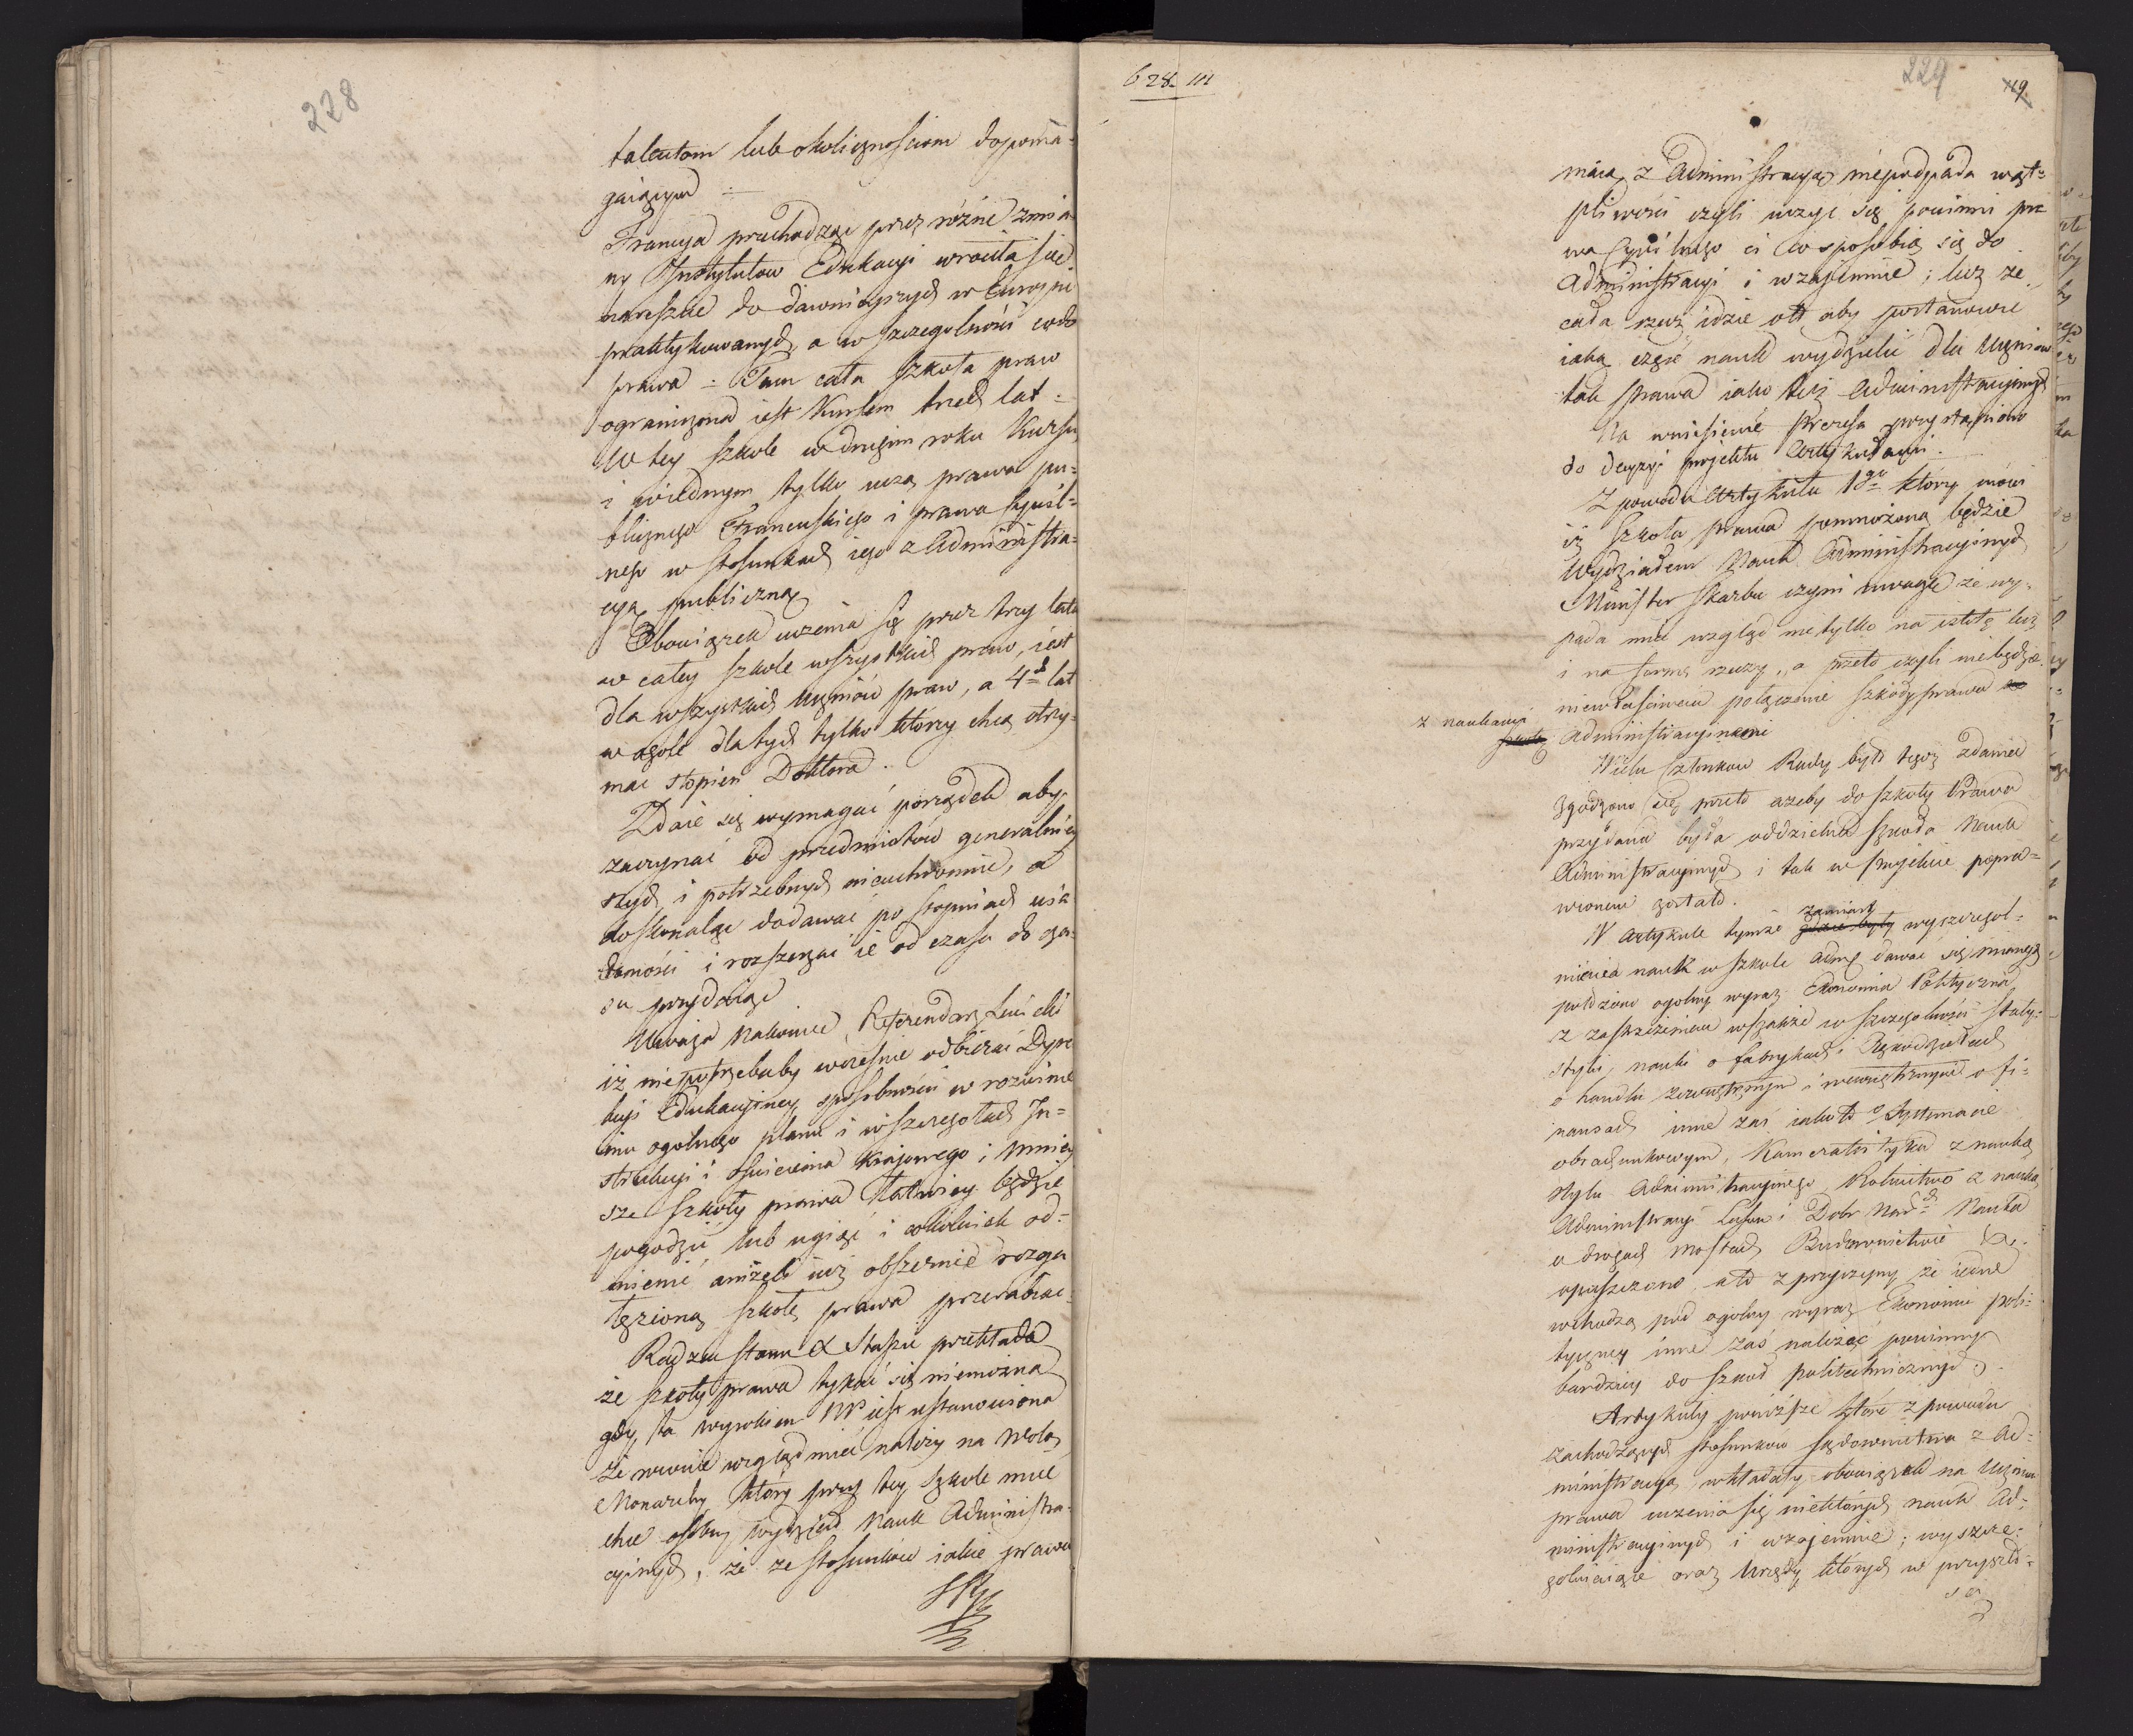 228
talentom lub okolicznościom dopoma-
gaiących
Francya przechodząc przez różne zmia
ny Instytutow Edukacyi wrociła się
nareszcie do dawniejszych w Europie
praktykowanych, a w szczegolności co do
prawa - Tam cała szkoła praw
ograniczona iest kursem trzech lat -
W tey szkole w drugim roku kursu
i iednym tylko uczą prawa pu-
blicznego Francuskiego i prawa Cywil-
nego w stosunkach iego z Administra-
cyą publiczną
Obowiązek uczenia się przez trzy lata
w całey szkole wszystkich praw, iest
dla wszystkich Uczniów praw, a 4ch lat
w ogole dla tych tylko którzy chcą otrzy-
mać stopień Doktora.
Zdaie się wymagać porządek aby
zaczynać od przedmiotów generalniey
szych i potrzebnych nieuchronnie, a
doskonaląc dodawać po stopniach wia
domości i rozszerzać ie od czasu do cza-
su przydaiąc
Uwaza nakoniec Referendarz
iż nie potrzebaby wcześnie odbierać Dyre
kcyi Edukacyiney sposobności w rozwinie
niu ogolnego planu i w szczegołach In-
strukcyi i oświecenia kraiowego i mniey
sze szkoły prawa łatwiey będzie
pogodzić lub ugiąć i cokolwiek od-
mienić, aniżeli iuż obszernie rozga
łęzioną szkołę prawa przerabiać
Radzca stanu X Staszic przekłada
że szkoły prawa tykać się niemożna
gdy ta wyrokiem NP iest ustanowiona
że rownie wzgląd mieć należy na wolą
Monarchy który przy tey szkole mieć
chce osobny wydział Nauk Administra-
cyinych, że ze stosunków iakie prawo

628. III
229
119.
maią z Administracyą niepodpada wąt-
pliwości czyli uczyć się powinni pra
wa Cywilnego ci co sposobią się do
Administracyi i wzaiemnie; lecz że
cała rzecz idzie o to aby postanowić
iaką część nauk wydzielić dla Uczniow
tak prawa iako też Administracyinych
Na wniesienie Prezesa przystąpiono
do decyzyi projektu Artykułami.
Z powodu Artykułu 1go który mówi
iż szkoła prawa pomnożoną będzie
Wydziałem Nauk Administracyinych
Minister Skarbu czyni uwagę że wy-
pada mieć wzgląd nietylko na istotę lecz
i na formę rzeczy, a przeto czyli niebędzie
niewłaściwem połączenie szkoły prawa
z naukami
Administracyinemi
Wielu Członkow Rady było tegoż zdania
zgodzono się przeto ażeby do szkoły Prawa
przydana była oddzielna szkoła Nauk
Administracyinych i tak w projekcie popra-
wionem zostało.
W Artykule tymże zamiast gdzie były wyszczegol-
nienia nauk w szkole Adm: dawać się maiących
położono ogolny wyraz Ekonomia Polityczna
z zastrzeżeniem wszakże w szczegolności staty-
styki, nauki o fabrykach i Rękodziełach
o handlu zewnętrznym i wewnętrznym o fi-
nansach inne zaś iakoto o systemacie
obrachunkowym, Kameralistyka z nauką
stylu Administracyinego, Rolnictwo z nauką
Administracyi Lasow i Dobr Nardch Nauka
o drogach mostach Budownictwie &c.
opuszczono, a to z przyczyny że iedne
wchodzą pod ogolny wyraz Ekonomii poli-
tyczney inne zaś należeć powinny
bardziey do szkoł politechnicznych.
Artykuły poniższe które z powodu
zachodzących stosunkow sądownictwa z Ad-
ministracyą, wkładały obowiązek na Uczniow
prawa uczenia się niektórych nauk Ad-
ministracyinych i wzaiemnie; wyszcze-
golniaiące oraz Urzędy których w przyszło-